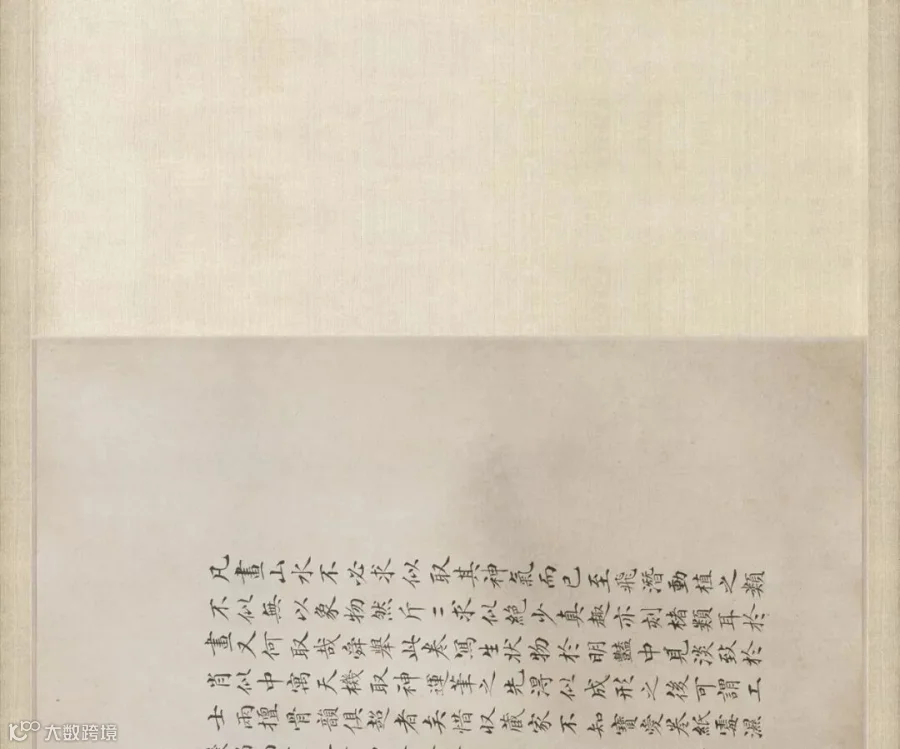 凡畫山水不必求似取其神氣而已至飛潛動植之類
不似無以象物然斤〻求似絕少真趣亦刻楮類耳於
畫又何取哉舜舉此卷寫生狀物於明豔中見淡致於
肖似中寓天機取神運筆之先得似成形之後可謂工
士兩擅骨韻俱超者矣惜收藏家不知寶愛卷紙霉濕
大数跨境